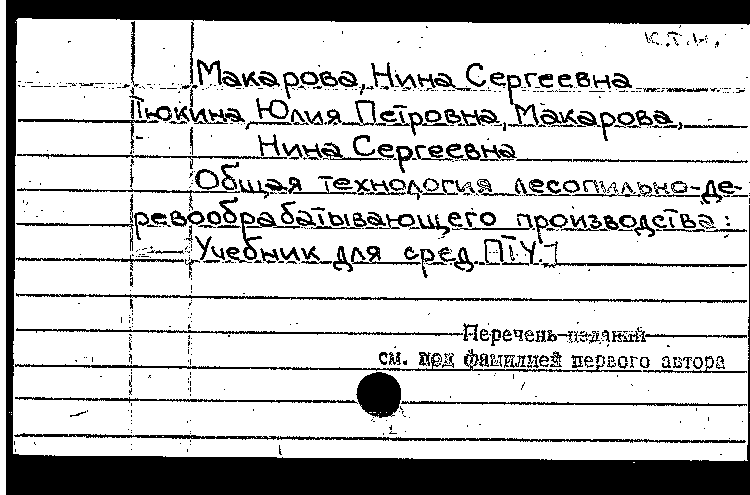 к.т.н.
Макарова, Нина Сергеевна
Тюкина, Юлия Петровна, Макарова,
Нина Сергеевна
Общая технология лесопильно-де-
ревообрабатывающего производства:
Учебник для сред. ПТУ.]
Перечень изданий
см. под фамилией первого автора